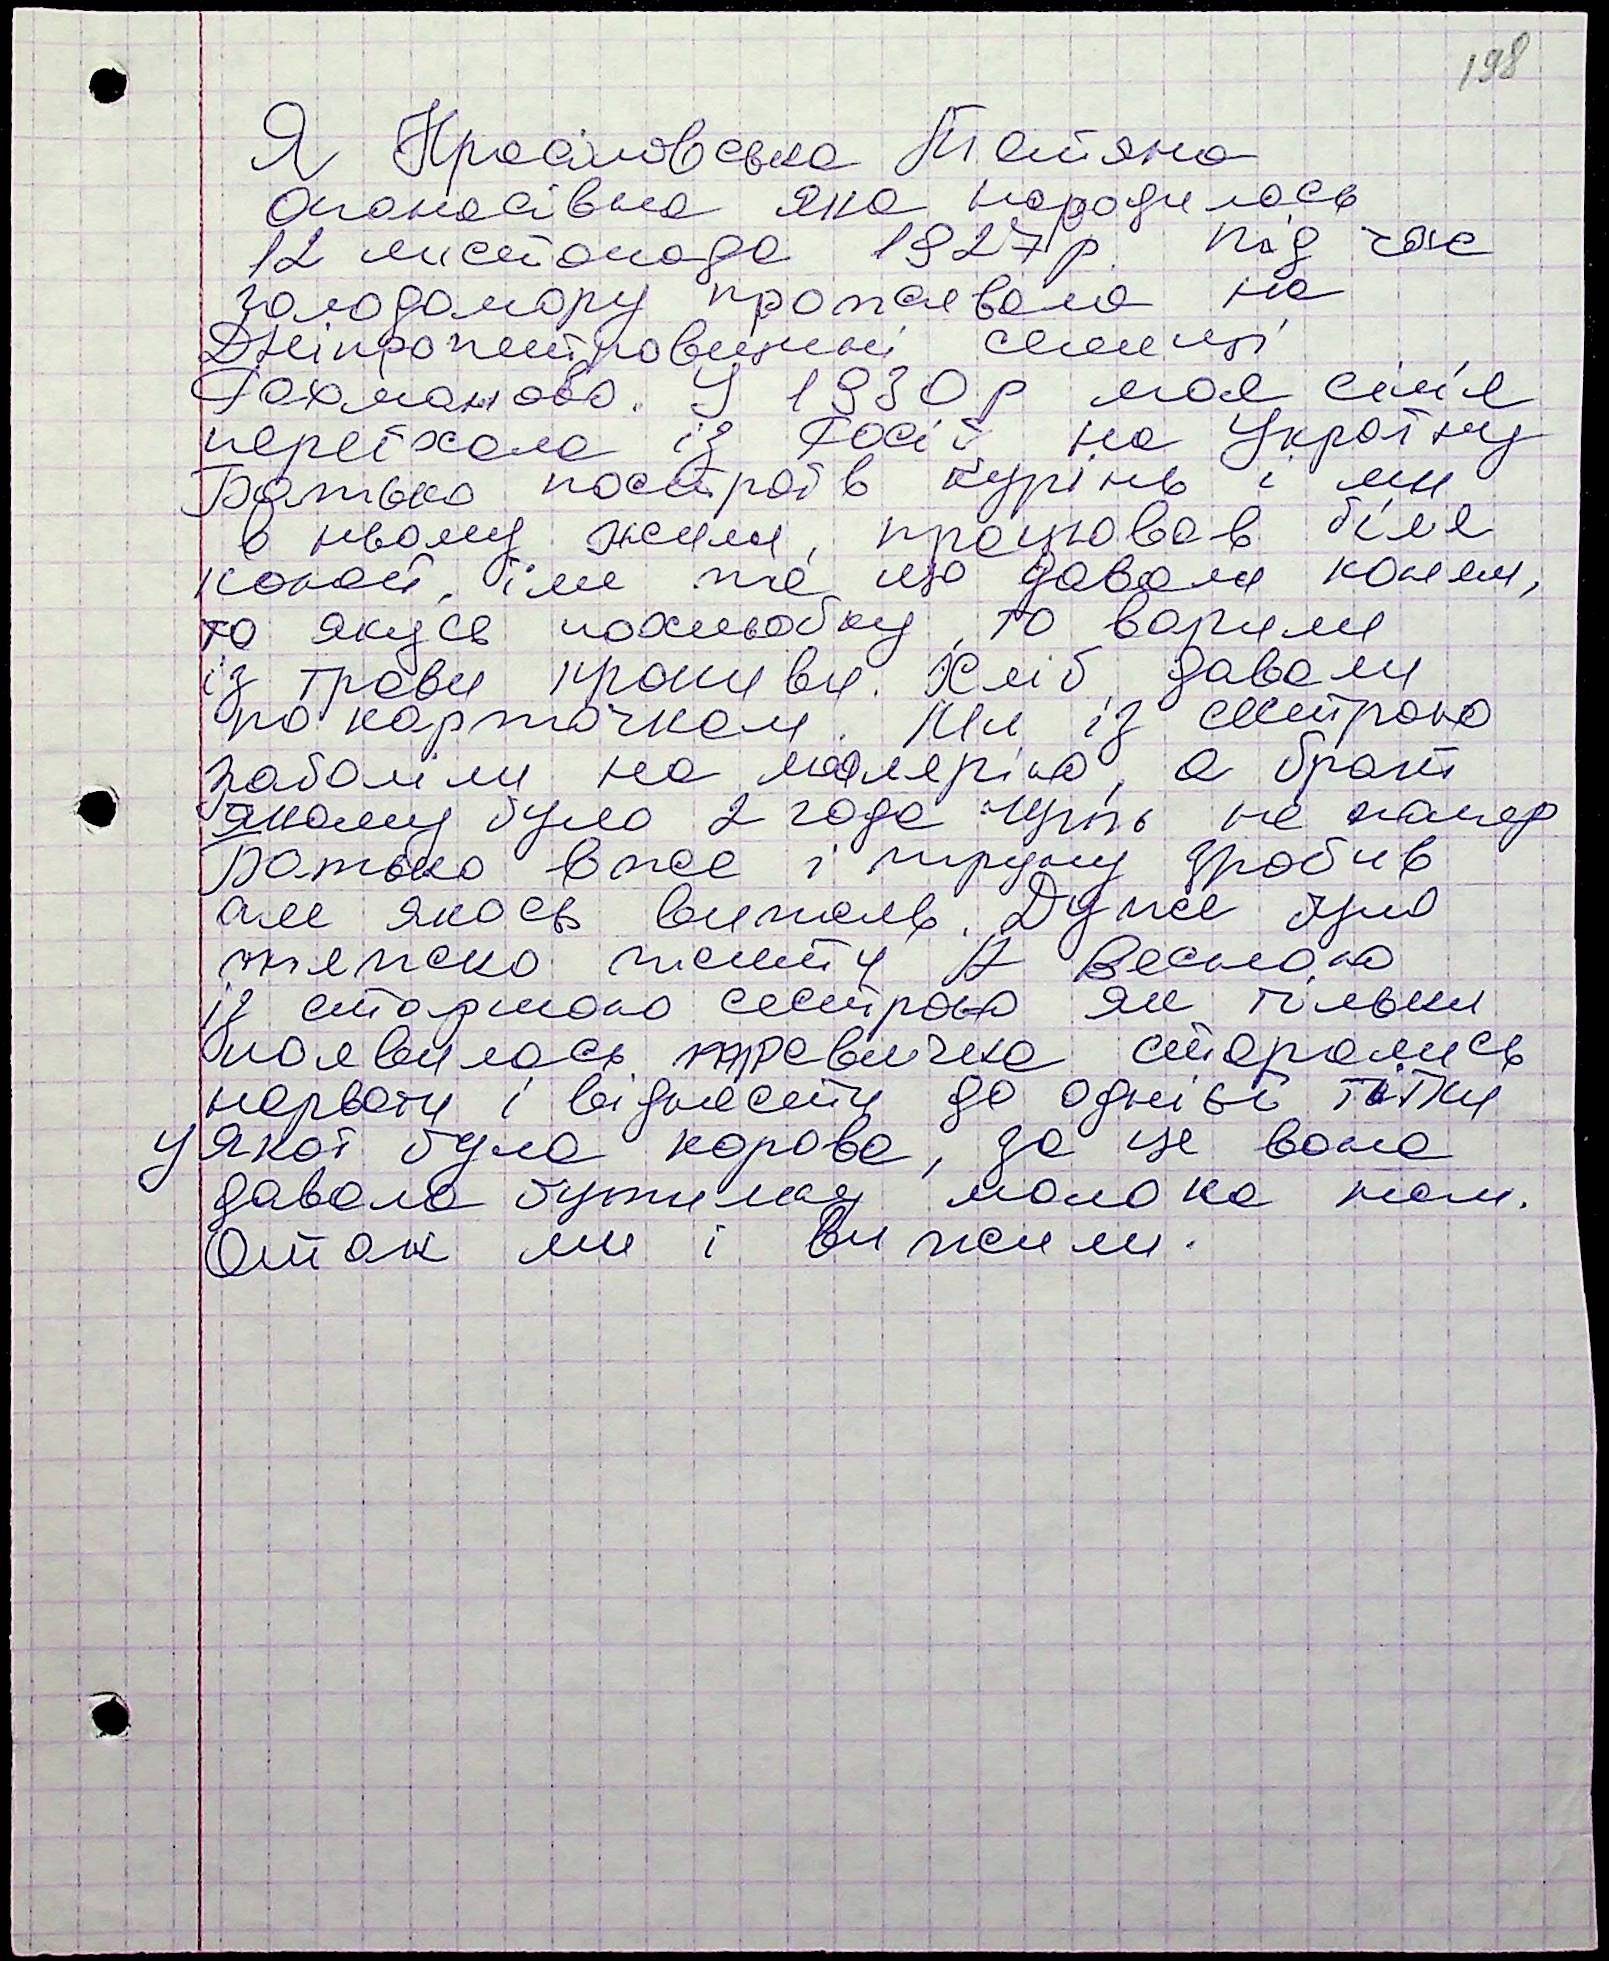 198
Я Красіловська Татяна
Опанасівна яка народилась
12 листопада 1927р. під час
голодомору проживала на
Дніпропетровщині селищі
Рахманово. У 1930р моя сімя
переїхала із Росії на Україну
Батько построїв курінь і ми
в ньому жили, працював біля
коней, їли те що давали коням,
то якусь похльобку, то варили
із трави кропиви. Хліб давали
по карточкам. Ми із сестрою
заболіли на малярію, а брат
якому було 2 года чуть не помер
Батько вже і труну зробив
але якось вижив. Дуже було
тяжко жити А весною
із старшою сестрою як тільки
появилась травичка старались
нарвати і віднести до однієї тітки
у якої була корова, за це вона
давала бутилку молока нам.
Отак ми і вижили.